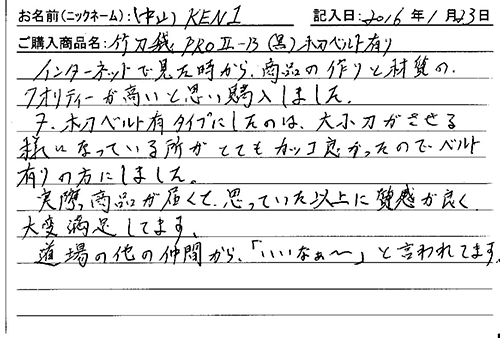 お名前(ニックネーム):(中山) KEN1 記入日:2016年1月23日
ご購入商品名:竹刀袋 PROⅡ-13 (黒) 木刀ベルト有り
インターネットで見た時から、商品の作りと材質の、
クオリティーが高いと思い購入しました。
又、木刀ベルト有タイプにしたのは、大小刀がさせる
様になっている所がとてもカッコ良かったので、ベルト
有りの方にしました。
実際、商品が届くと、思っていた以上に質感が良く
大変満足してます。
道場の他の仲間から、「いいなぁ〜」と言われてます。